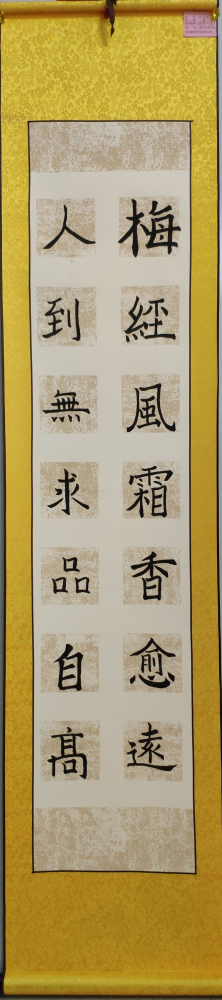 梅經風霜香愈遠
人到無求品自髙